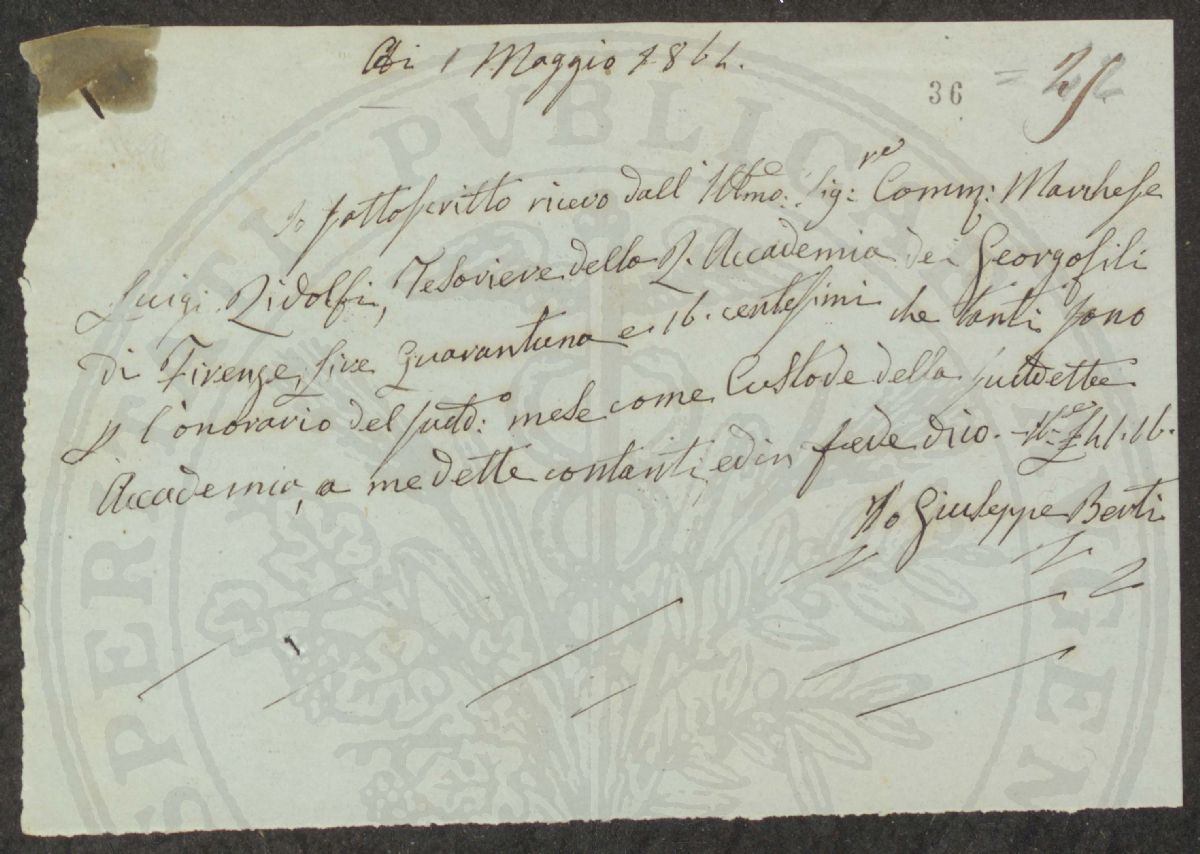 Adi 1 Maggio 1864.
36
Io sottoscritto ricevo dall' Illmo: Sig:re Comm: Marchese
Luigi Ridolfi, Tesoriere della R. Accademia dei Georgofili
di Firenze, lire Quarantuna e. 16. centesimi che tanti sono
p l'onorario del sudd:o mese come Custode della suddetta
Accademia, a me dette contanti, ed in fede dico. £ 41.16.
Io Giuseppe Berti
PUBLICA
PROSPERITATI